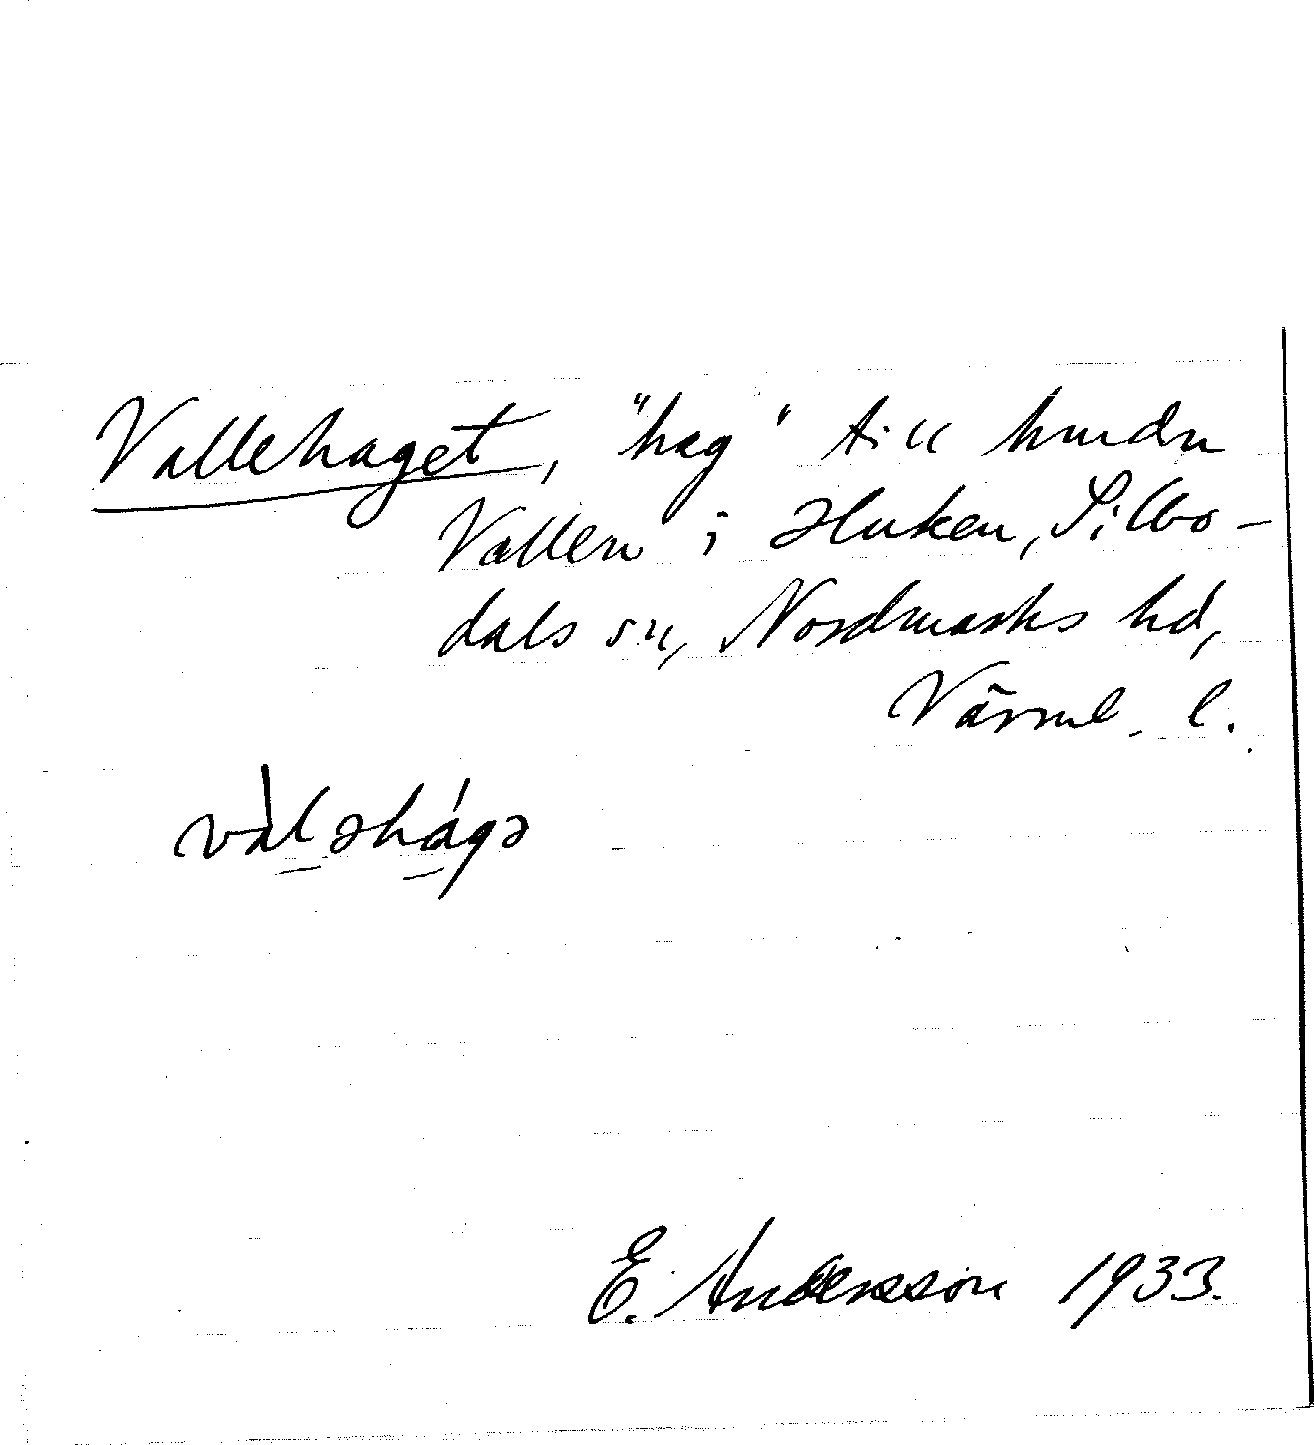 Vallehaget, "hag" till hmdn
Vallen i Huken, Silbo-
dals sn, Nordmarks hd,
Värml. l.
vàləhágə
E. Andersson 1933.